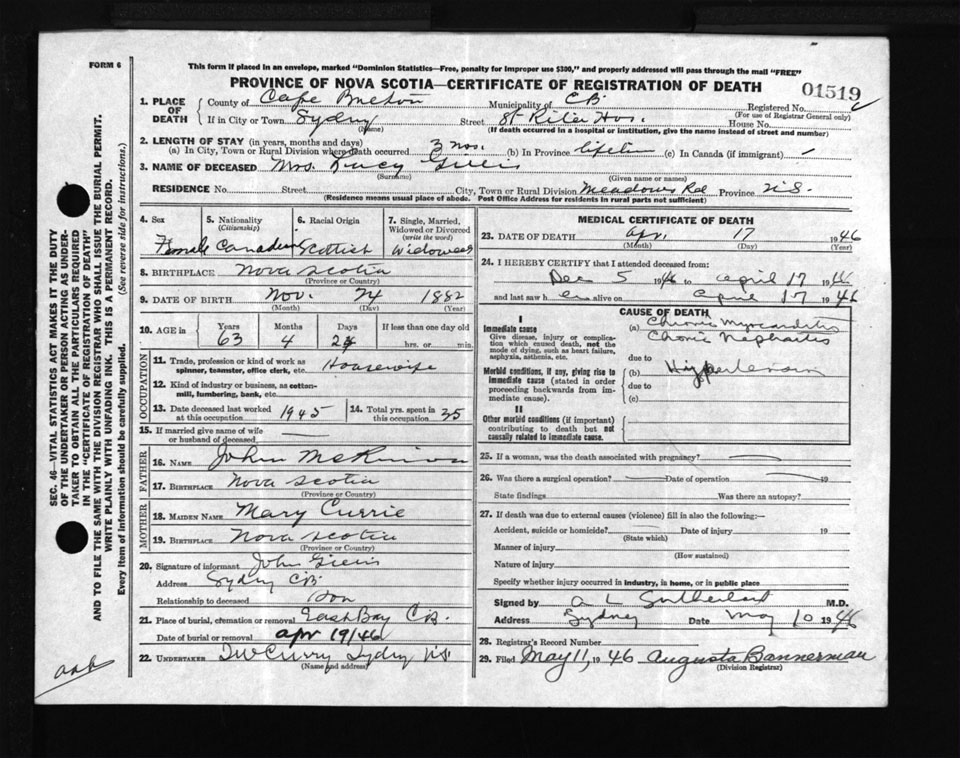 FORM 6
This form if placed in an envelope, marked "Dominion Statistics—Free, penalty for improper use $300," and properly addressed will pass through the mail "FREE"
PROVINCE OF NOVA SCOTIA—CERTIFICATE OF REGISTRATION OF DEATH
01519
1. PLACE OF DEATH { County of Cape Breton Municipality of C.B. Registered No.
(For use of Registrar General only)
If in City or Town Sydney Street St Rita Hos. House No.
(Name) (If death occurred in a hospital or institution, give the name instead of street and number)
2. LENGTH OF STAY (in years, months and days)
(a) In City, Town or Rural Division where death occurred 3 mos. (b) In Province lifetime (c) In Canada (if immigrant)
3. NAME OF DECEASED Mrs. Gillis
(Surname) (Given name or names)
RESIDENCE No. Street City, Town or Rural Division Meadows Rd Province N.S.
(Residence means usual place of abode. Post Office Address for residents in rural parts not sufficient)
SEC. 46—VITAL STATISTICS ACT MAKES IT THE DUTY
OF THE UNDERTAKER OR PERSON ACTING AS UNDER-
TAKER TO OBTAIN ALL THE PARTICULARS REQUIRED
IN THE "CERTIFICATE OF REGISTRATION OF DEATH"
AND TO FILE THE SAME WITH THE DIVISION REGISTRAR WHO SHALL ISSUE THE BURIAL PERMIT.
WRITE PLAINLY WITH UNFADING INK. THIS IS A PERMANENT RECORD.
Every item of information should be carefully supplied. (See reverse side for instructions.)
4. Sex
Female
5. Nationality
(Citizenship)
Canadian
6. Racial Origin
Scottish
7. Single, Married, Widowed or Divorced
(write the word)
Widowed
8. BIRTHPLACE Nova Scotia
(Province or Country)
9. DATE OF BIRTH Nov. 24 1882
(Month) (Day) (Year)
10. AGE in { Years Months Days If less than one day old
63 4 24 hrs. or min.
OCCUPATION
11. Trade, profession or kind of work as
spinner, teamster, office clerk, etc. Housewife
12. Kind of industry or business, as cotton-
mill, lumbering, bank, etc.
13. Date deceased last worked at this occupation 1945 14. Total yrs. spent in this occupation 35
15. If married give name of wife
or husband of deceased
FATHER
16. NAME John McKinnon
17. BIRTHPLACE Nova Scotia
(Province or Country)
MOTHER
18. MAIDEN NAME Mary Currie
19. BIRTHPLACE Nova Scotia
(Province or Country)
20. Signature of informant John Gillis
Address Sydney C.B.
Relationship to deceased Son
21. Place of burial, cremation or removal East Bay C.B.
Date of burial or removal Apr 19/46
22. UNDERTAKER Curry Sydney N.S.
(Name and address)
MEDICAL CERTIFICATE OF DEATH
23. DATE OF DEATH Apr. 17 1946
(Month) (Day) (Year)
24. I HEREBY CERTIFY that I attended deceased from:
Dec 5 19 to April 17 1946
and last saw h er alive on April 17 1946
CAUSE OF DEATH
I
Immediate cause
Give disease, injury or complica-
tion which caused death, not the
mode of dying, such as heart failure,
asphyxia, asthenia, etc.
(a) Chronic Myocarditis
Chronic Nephritis
due to
Morbid conditions, if any, giving rise to
immediate cause (stated in order
proceeding backwards from im-
mediate cause).
(b) Hypertension
due to
(c)
II
Other morbid conditions (if important)
contributing to death but not
causally related to immediate cause.
25. If a woman, was the death associated with pregnancy?
26. Was there a surgical operation? Date of operation 19
State findings Was there an autopsy?
27. If death was due to external causes (violence) fill in also the following:—
Accident, suicide or homicide? Date of injury 19
(State which)
Manner of injury
(How sustained)
Nature of injury
Specify whether injury occurred in industry, in home, or in public place
Signed by A L Sutherland M.D.
Address Sydney Date May 10 1946
28. Registrar's Record Number
29. Filed May 11, 1946 Augusta Bannerman
(Division Registrar)